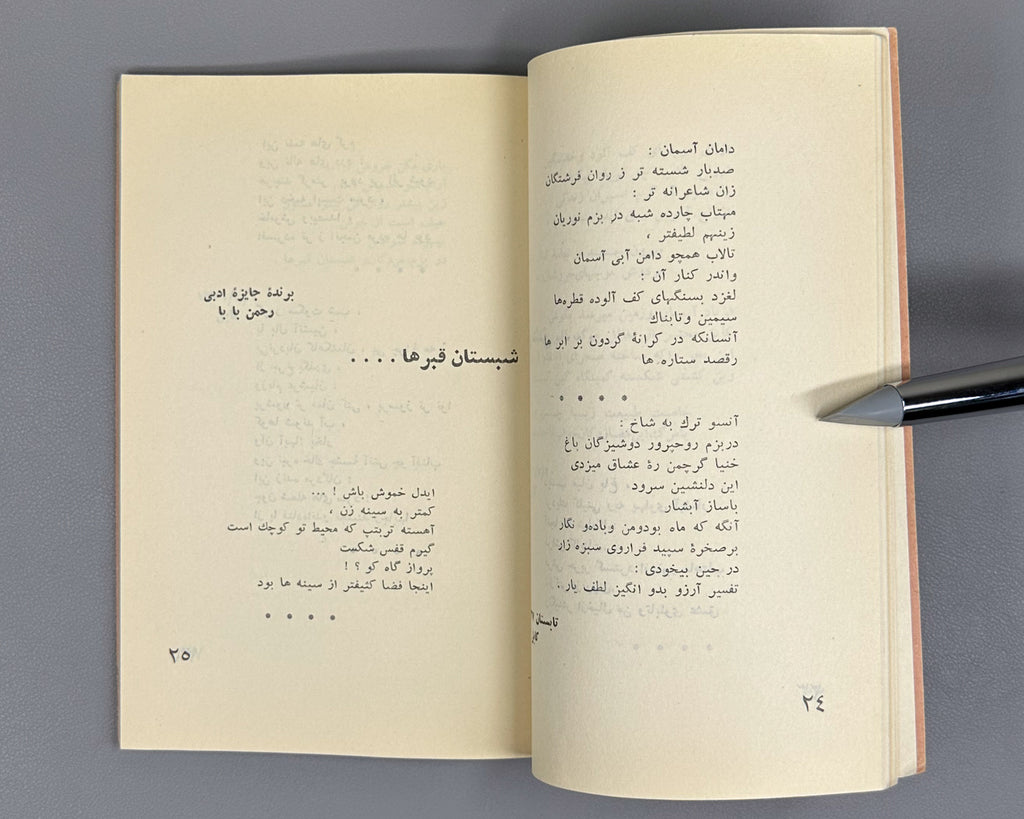 دامان آسمان :
صدبار شسته تر ز روان فرشتگان
زان شاعرانه تر :
مهتاب چارده شبه در بزم نوریان
زینهم لطیفتر ،
تالاب همچو دامن آبی آسمان
واندر کنار آن :
لغزد بسنگهای کف آلوده قطره‌ها
سیمین وتابناك
آنسانکه در کرانهٔ گردون بر ابر ها
رقصد ستاره ها
• • • •
آنسو ترك به شاخ :
دربزم روحپرور دوشیزگان باغ
خنیا گرچمن رهٔ عشاق میزدی
این دلنشین سرود
باساز آبشار
آنگه که ماه بودومن وباده‌و نگار
برصخرهٔ سپید فراروی سبزه زار
در حین بیخودی :
تفسیر آرزو بدو انگیز لطف یار .
تابستان
٢٤
برندهٔ جایزهٔ ادبی
رحمن با با
شبستان قبرها . . . .
ایدل خموش باش ! ...
کمتر به سینه زن ،
آهسته تربتپ که محیط تو کوچك است
گیرم قفس شکست
پرواز گاه کو ؟ !
اینجا فضا کثیفتر از سینه ها بود
• • • •
٢٥